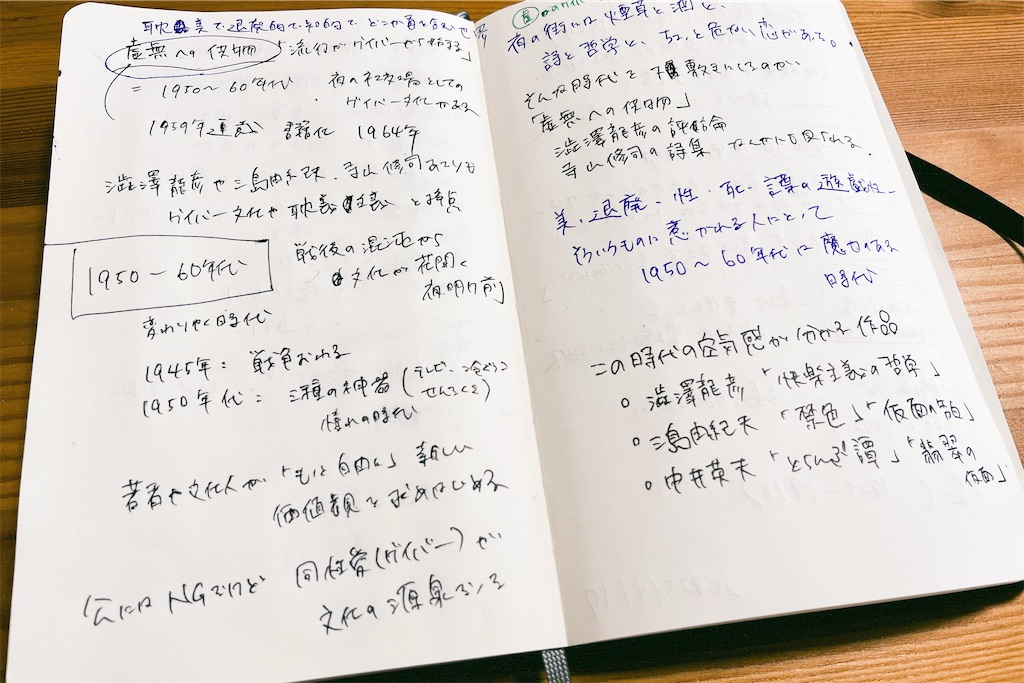 耽美で退廃的で知的で どこか毒を含む世界
虚無への供物 「流行がゲイバーから始まる」
= 1950～60年代 ・夜の社交場としての
ゲイバー文化がある
1959年連載 書籍化 1964年
澁澤龍彦や三島由紀夫、寺山修司あたりも
ゲイバー文化や耽美主義と接点
1950－60年代
戦後の混沌から
文化が花開く
夜明け前
変わりゆく時代
1945年： 戦争おわる
1950年代： 三種の神器 (テレビ、冷ぞうこ
せんたくき)
憧れの時代
若者や文化人が「もっと自由に」新しい
価値観を求めはじめる
公にはNGだけど 同性愛(ゲイバー)が
文化の源泉になる
夜の街には煙草と酒と、
詩と哲学と、ちょっと危ない恋がある。
そんな時代を下敷きにしてるのが
「虚無への供物」
澁澤龍彦の評論
寺山修司の詩集 なんかにも見られる.
美、退廃、性、死、謎の遊戯性、
そういうものに惹かれる人にとって
1950～60年代は魔力のある
時代
この時代の空気感が分かる作品
○ 澁澤龍彦 「快楽主義の哲学」
○ 三島由紀夫 「禁色」「仮面の告白」
○ 中井英夫 「とらんぷ譚」「翡翠の
仮面」